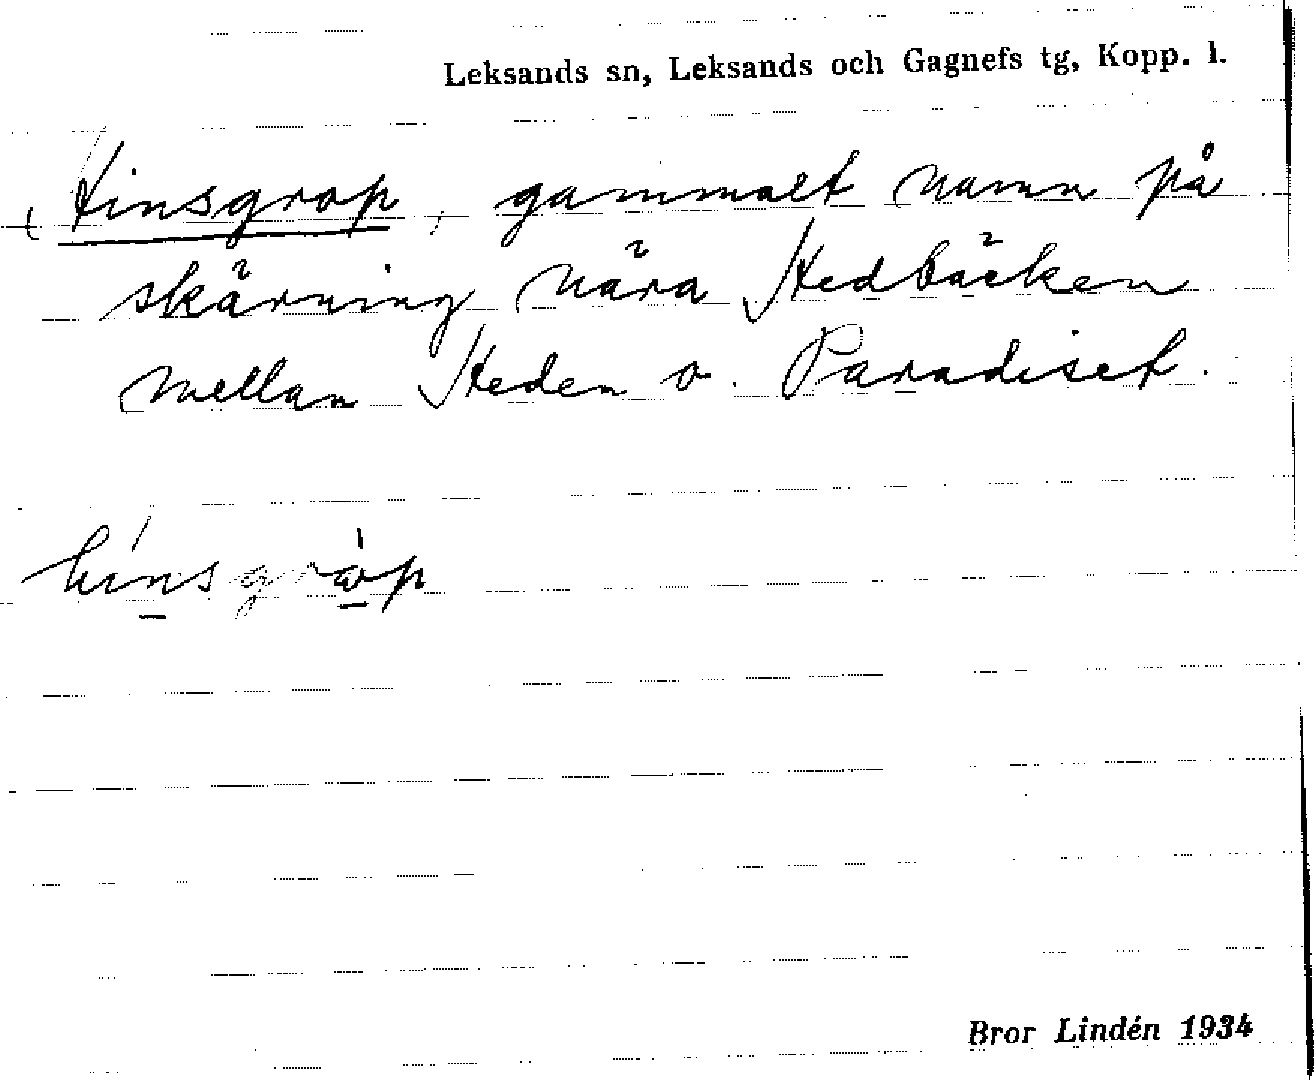 Leksands sn, Leksands och Gagnefs tg, Kopp. l.
Hinsgrop, gammalt namn på
skärning nära Hedbäcken
mellan Heden o. Paradiset.
hìnsgròp
Bror Lindén 1934